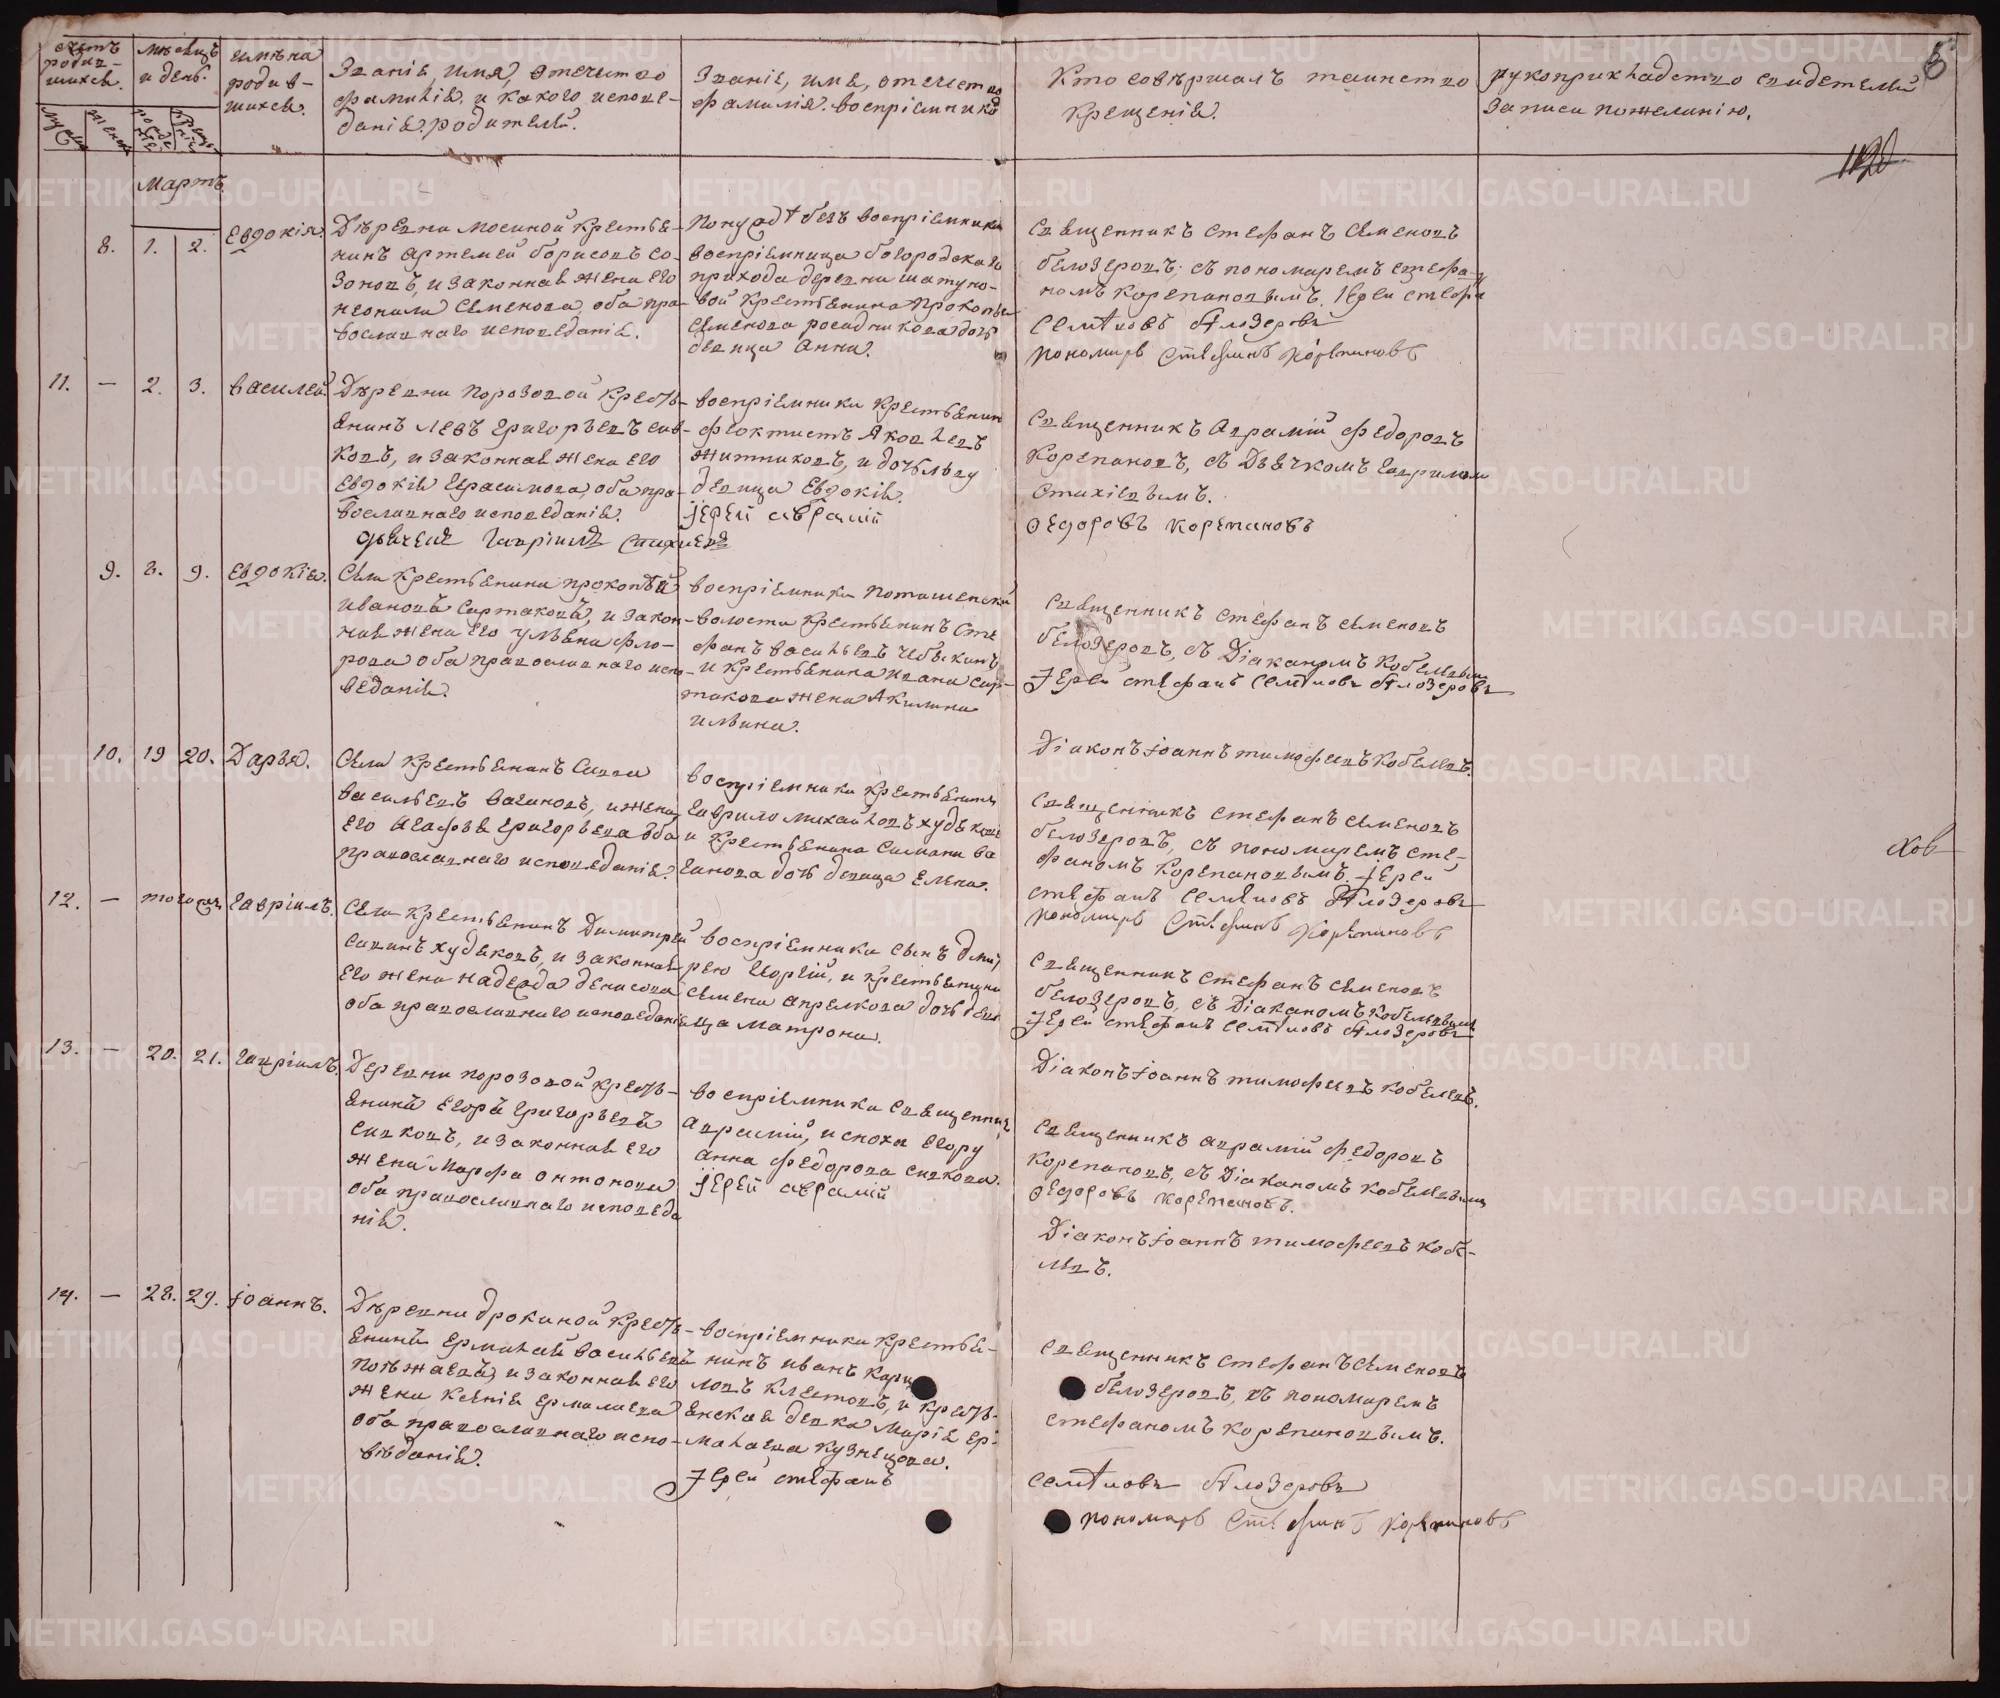 счетъ родив-шихся.
мѣсяцъ и день.
имѣна родив-шихся.
Званіе, имя, отечество
фамилія и какого испове-
данія родители.
Званіе, имя, отечество
фамилія воспріемниковъ
Кто совѣршалъ таинство
крещенія.
рукоприкладство свидетелей
записи пожеланію.
8
Мартъ
8. 1. 2. Евдокія.
Дѣревни Мосиной крестья-
нинъ Артемей Борисовъ Со-
зоновъ, и законная жена его
Неонила Семенова, оба пра-
вославнаго исповеданія.
воспріемница богородскаго
прихода деревни шатуно-
вой крестьянина Прокопья
Семенова росадникова дочь
девица Анна.
Священникъ Стефанъ Семеновъ
Белозеровъ, съ пономаремъ Стефа-
номъ Корепановымъ. Іерей Стефанъ
Семеновъ Бѣлозеровъ
пономарь Стефанъ Корепановъ
11. — 2. 3. Василей.
Дѣревни Порозовой кресть-
янинъ Левъ Григорьевъ Сив-
ковъ, и законная жена его
Евдокія Герасимова, оба пра-
вославнаго исповеданія.
воспріемники крестьянинъ
Феоктистъ Яковлевъ
Житниковъ, и дочь Льву
девица Евдокія.
іерей аврамій
Священникъ Аврамій Федоровъ
Корепановъ, съ Дьячкомъ Гавриломъ
Стахіевымъ.
Федоровъ Корепановъ
дьячекъ Гавріилъ Стахиевъ
9. 8. 9. Евдокія.
Села Крестьянина Прокопѣй
Ивановъ Сартаковъ, и закон-
ная жена его Ульяна Фло-
рова оба православнаго испо-
веданія.
воспріемники Поташенской
волости крестьянинъ Сте
фанъ Васильевъ Чебыкинъ
и крестьянина Ивана Сар-
такова жена Акилина
Ильина.
Священникъ Стефанъ Семеновъ
Белозеровъ, съ Діакономъ Кобелевымъ
Іерей Стефанъ Семеновъ Бѣлозеровъ
Діаконъ Іоаннъ Тимофеевъ Кобелевъ.
10. 19 20. Дарья.
Села Крестьянинъ Савва
Васильевъ Вагановъ, и жена
его Агафья Григорьева оба
православнаго исповеданія.
воспріемники крестьянинъ
Гаврило Михайловъ Худяковъ
и крестьянина Симона Ва
ганова дочь девица Елена.
Священникъ Стефанъ Семеновъ
Белозеровъ, съ пономаремъ Сте-
фаномъ Корепановымъ. Іерей
Стефанъ Семеновъ Бѣлозеровъ
пономарь Стефанъ Корепановъ
12. — Гавріилъ.
Села Крестьянинъ Димитрей
Савинъ Худяковъ, и законная
его жена Надежда Денисова
оба православнаго исповеданія
воспріемники сынъ Дми
рею Георгій, и крестьянина
Семена Апрелкова дочь деви
ца Матрона.
Священникъ Стефанъ Семеновъ
Белозеровъ, съ Діакономъ Кобелевымъ
Іерей Стефанъ Семеновъ Бѣлозеровъ
Діаконъ Іоаннъ Тимофеевъ Кобелевъ.
13. — 20. 21. Гавріилъ.
Деревни Порозовой кресть-
янинъ Егоръ Григорьевъ
Сивковъ, и законная его
жена Марфа Онтонова
оба православнаго исповеда
нія.
воспріемники Священникъ
Аврамій, и сноха Егору
Анна Федорова Сивкова.
іерей аврамій
Священникъ Аврамій Федоровъ
Корепановъ, съ Діакономъ Кобелевымъ
Федоровъ Корепановъ.
Діаконъ Іоаннъ Тимофеевъ Кобе-
левъ.
14. — 28. 29. Іоаннъ.
Дѣревни Дрокиной кресть-
янинъ Ермилай Васильевъ
Полѣжаевъ, и законная его
жена Ксенія Ермолаева
оба православнаго испо-
вѣданія.
воспріемники крестья-
нинъ Иванъ Карп
ловъ Клестовъ, и кресть-
янская девка Марія Ер-
молаева Кузнецова.
Іерей Стефанъ
Священникъ Стефанъ Семеновъ
Белозеровъ, съ пономаремъ
Стефаномъ Корепановымъ.
Семеновъ Бѣлозеровъ
пономарь Стефанъ Корепановъ
METRIKI.GASO-URAL.RU